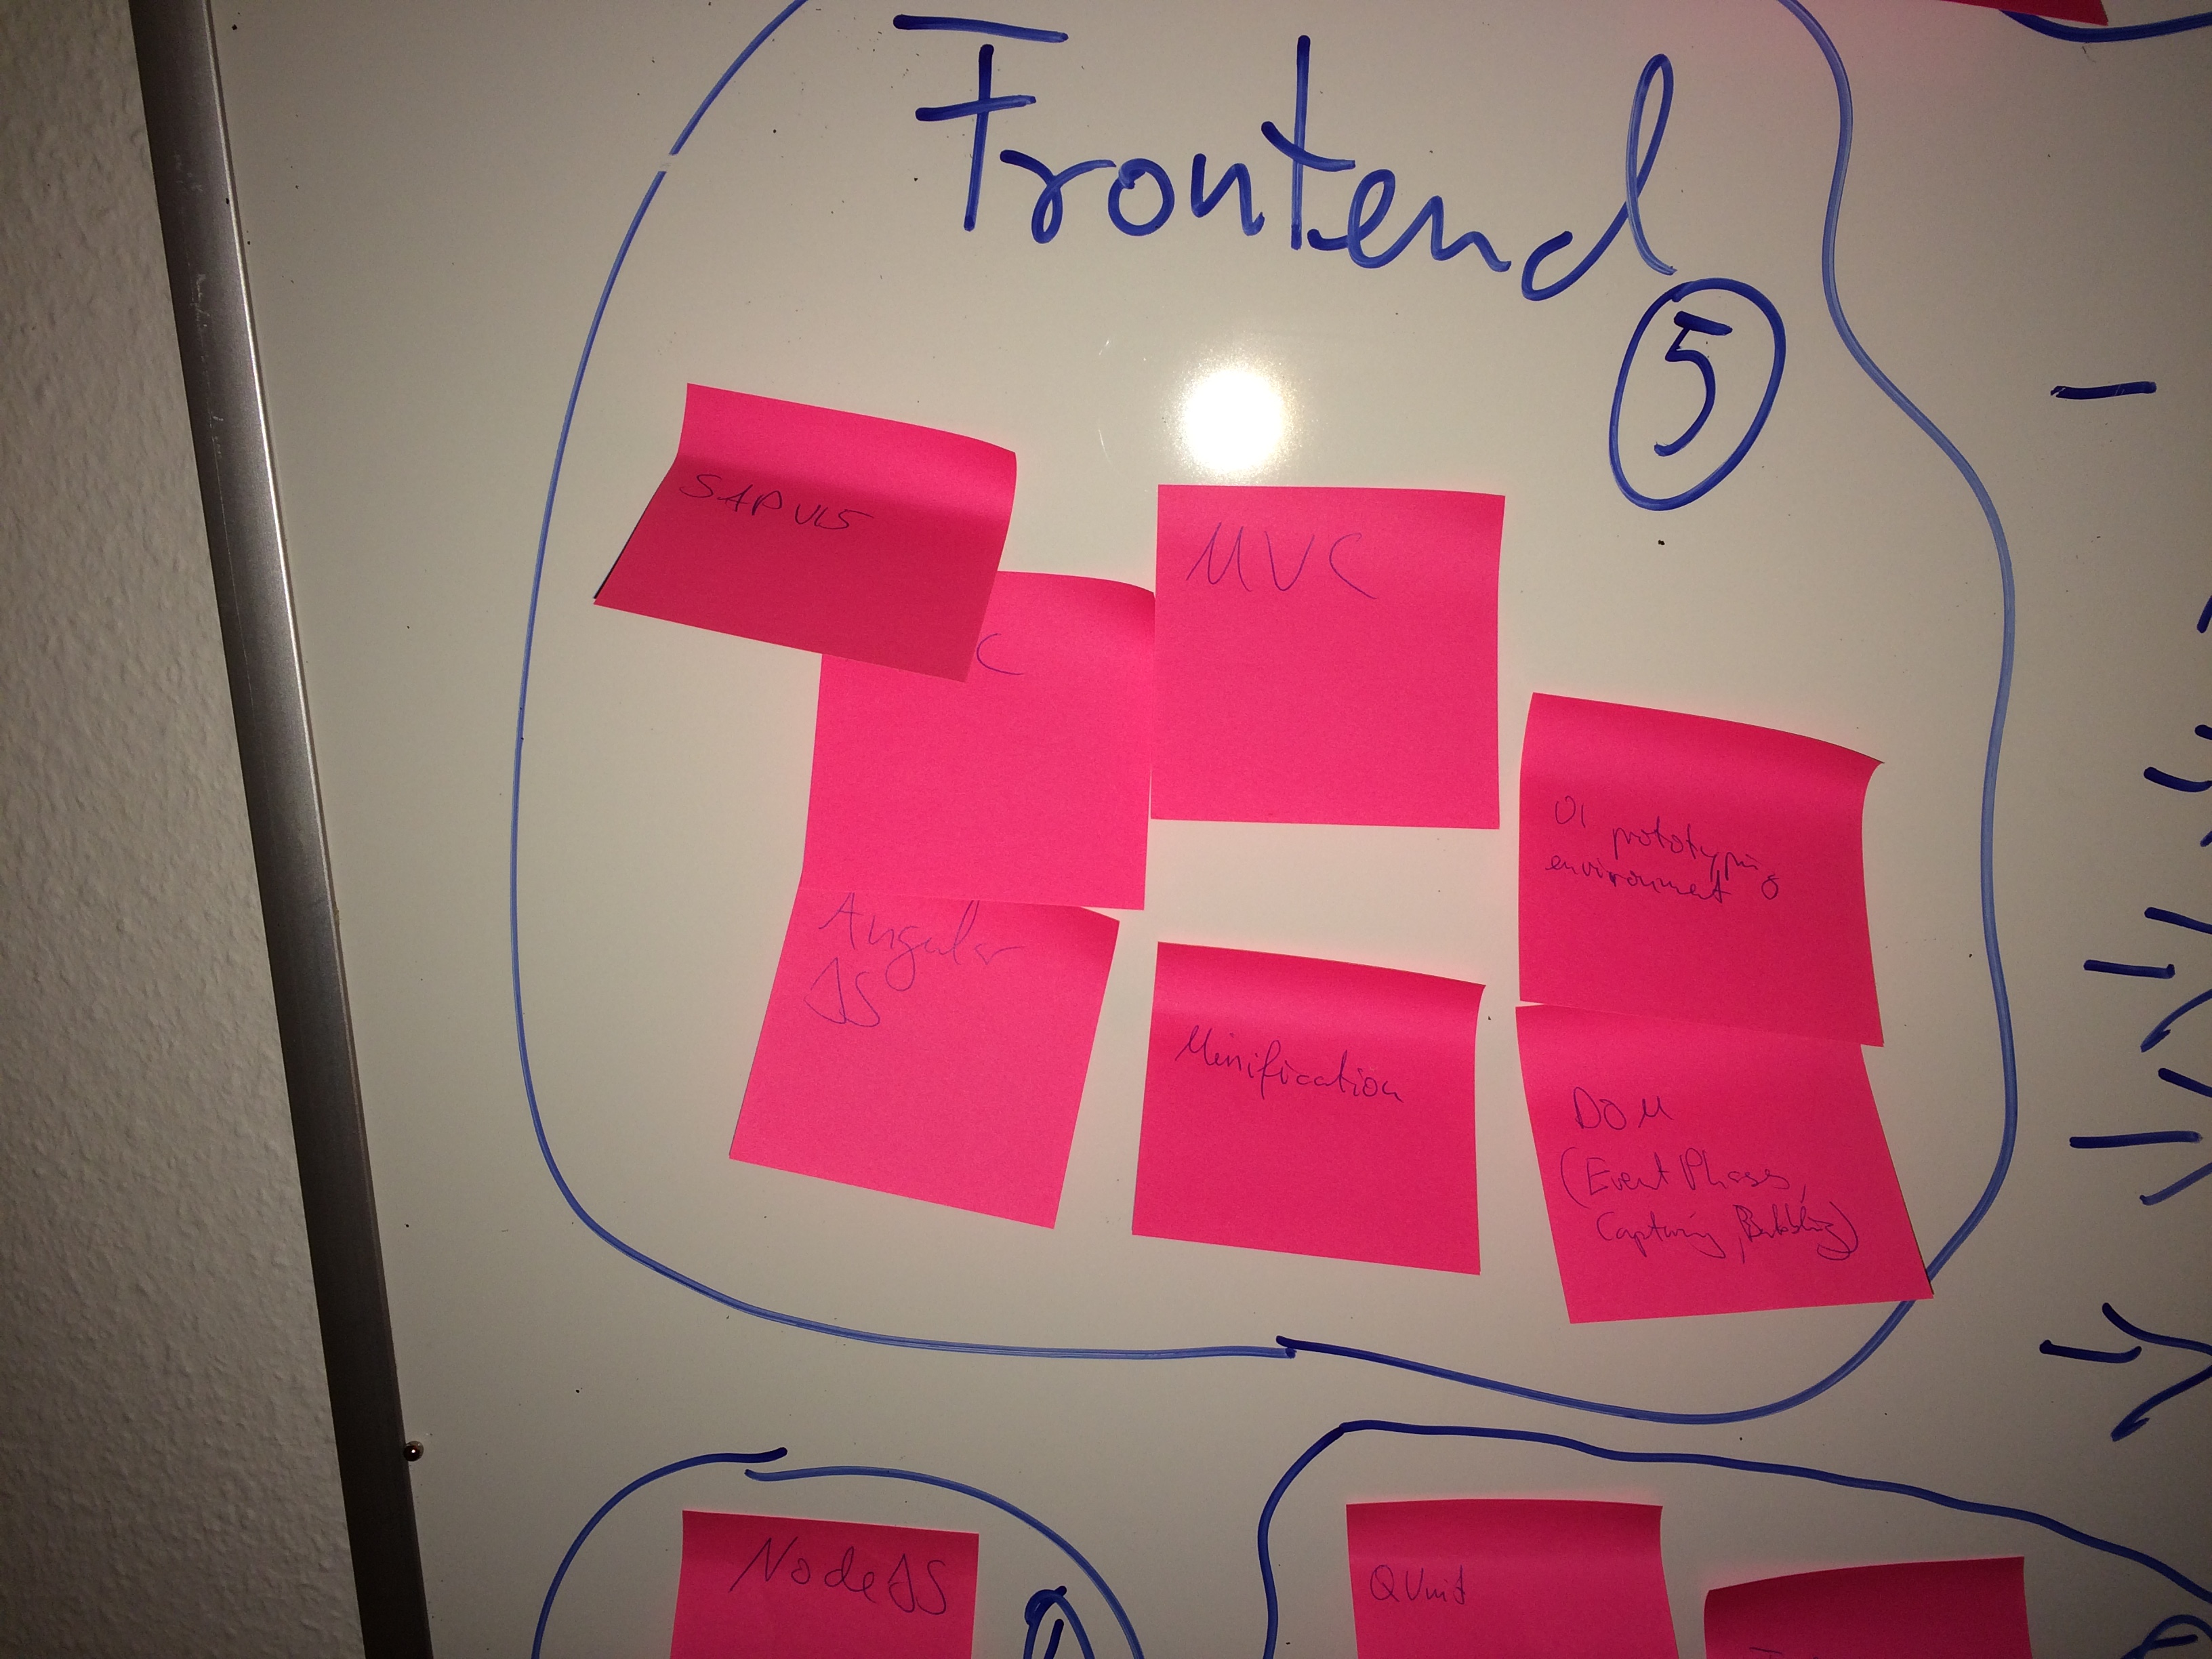 Frontend
5
SAPUI5
MVC
C
UI prototyping
environment
Angular
JS
Minification
DOM
(Event Phases,
Capturing, Bubbling)
NodeJS
QUnit